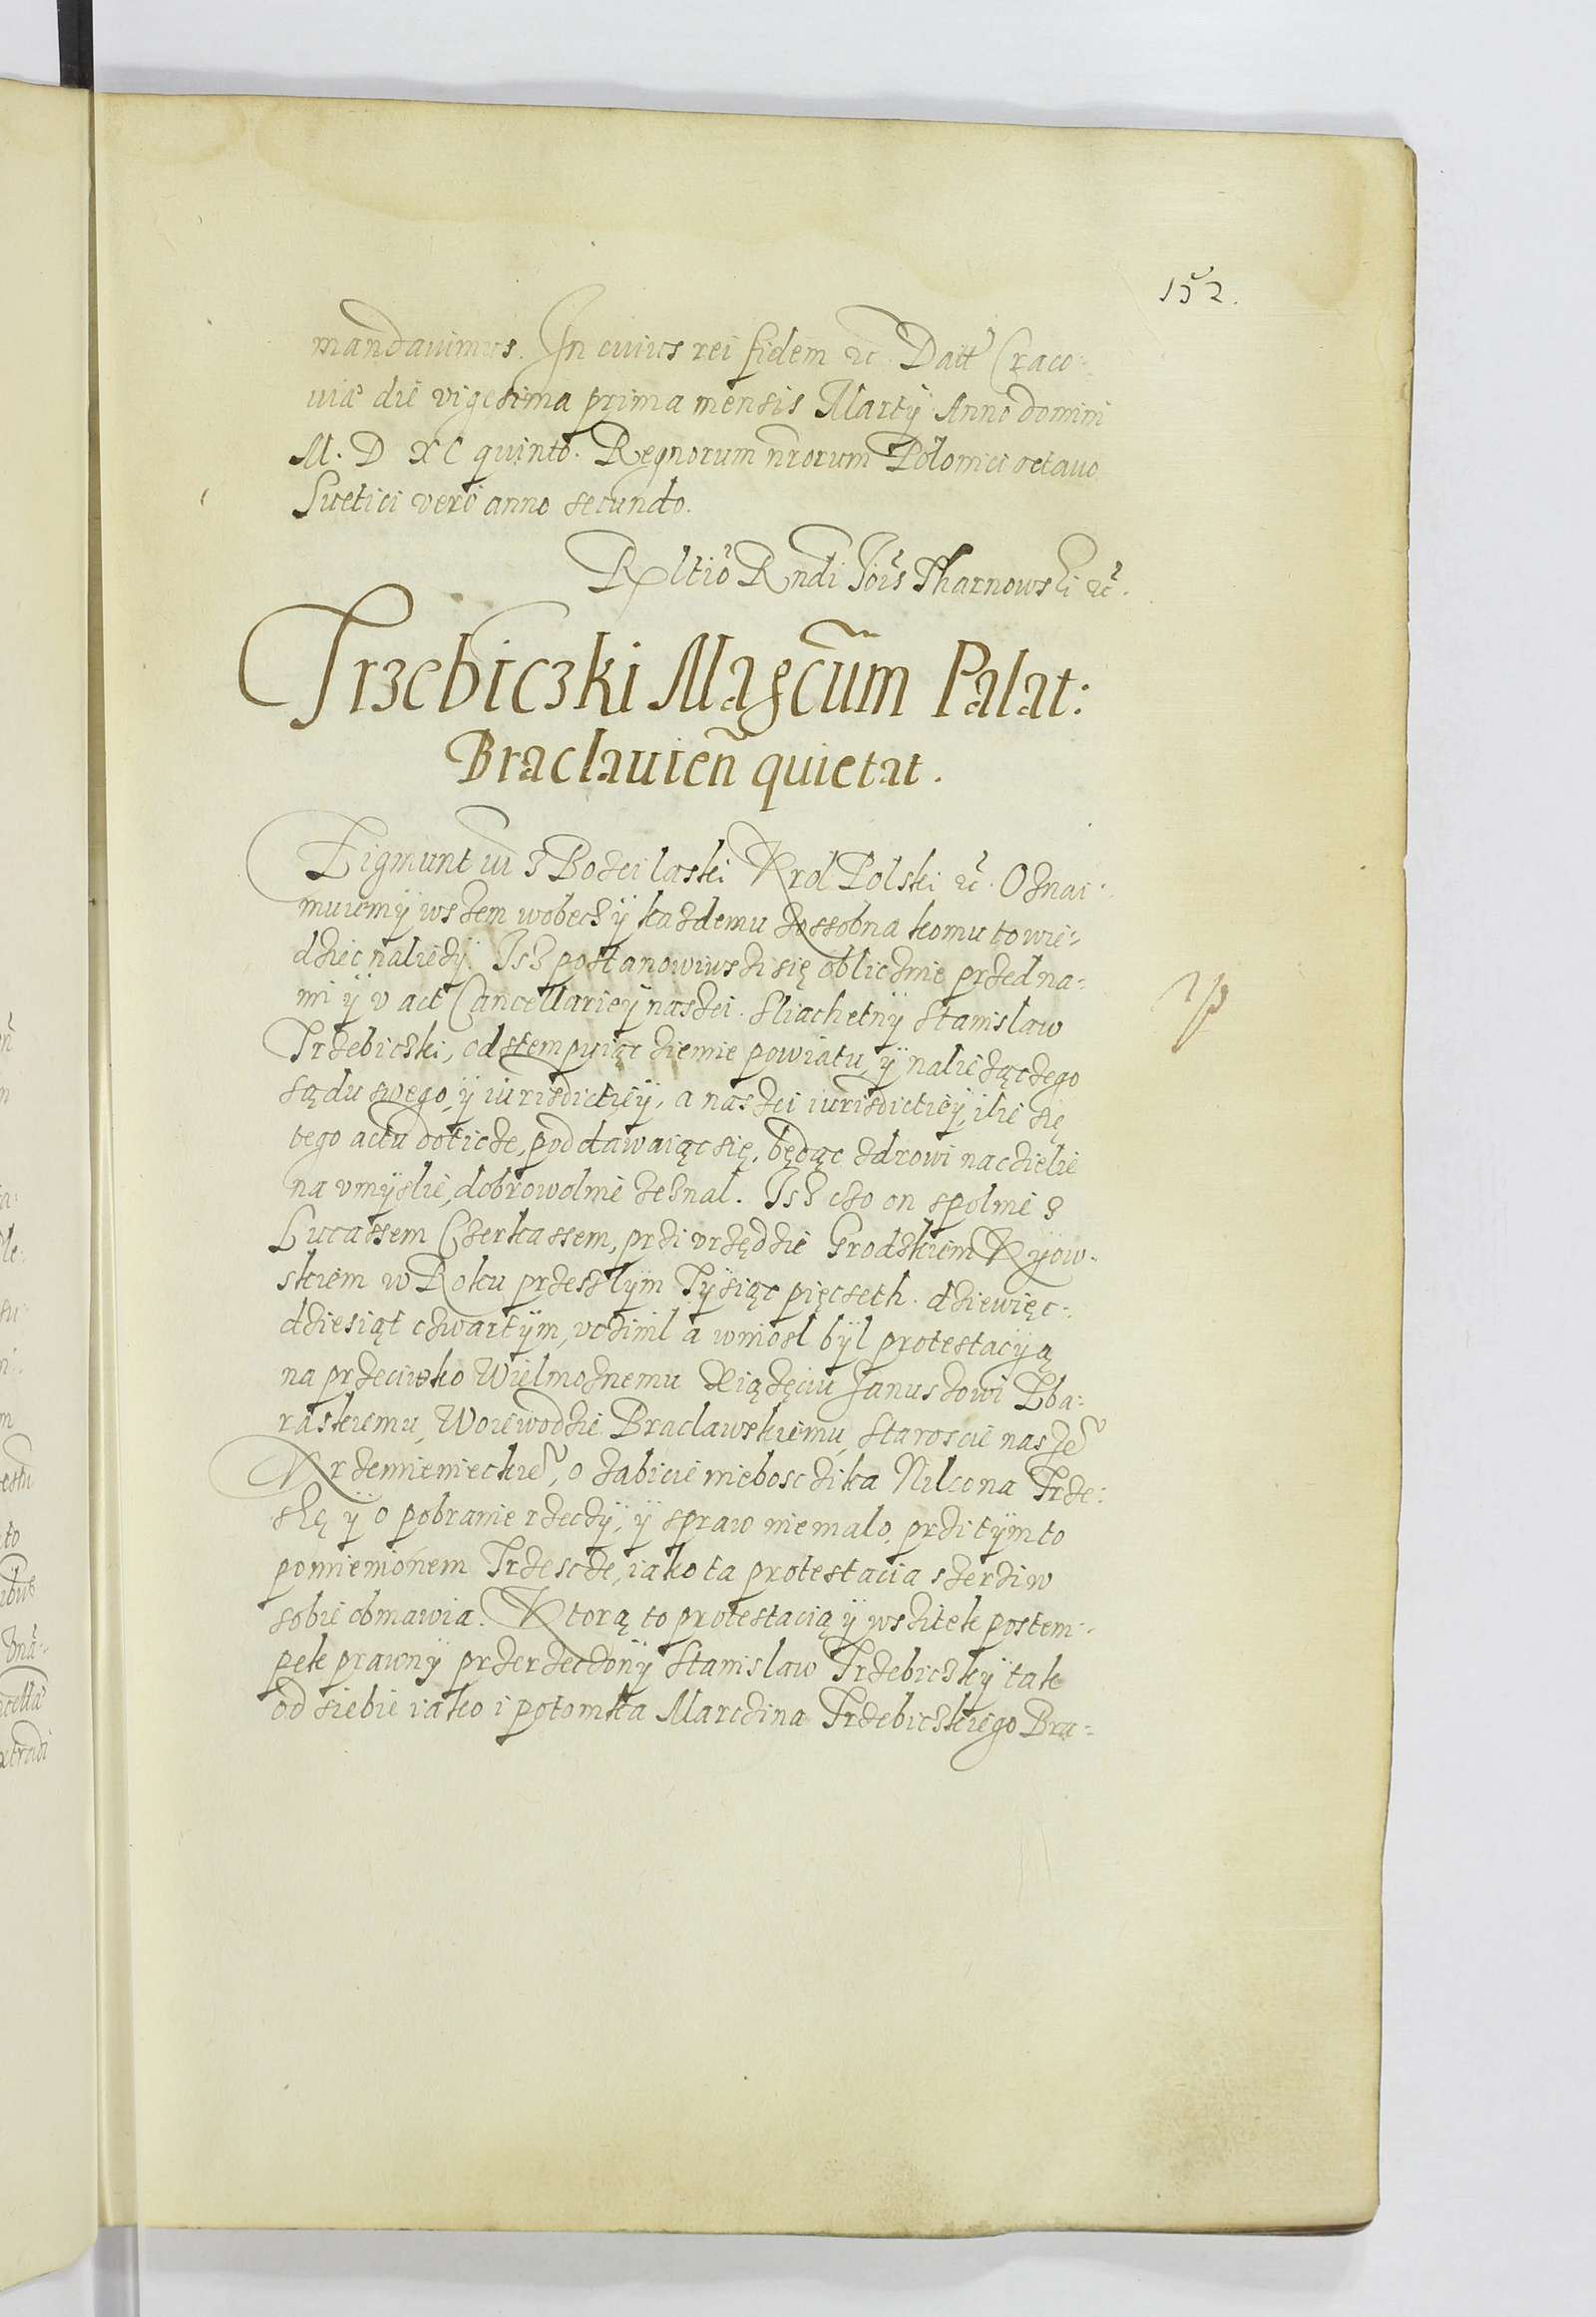 152.
mandauimus. In cuius rei fidem etc. Datt Craco-
uiæ die vigesima prima mensis Martÿ Anno domini
M. D XC quinto. Regnorum nrorum Poloniei octauo
Suetici vero anno secundo.
Rltio Rndi Jois Tharnowski etc.
Trzebiczki Magcum Palat:
Braclauien quietat.
Zigmunt III z Bozei laski Krol Polski etc. Oznai-
muiemÿ wszem wobecz ÿ kazdemu zossobna komu to wie-
dziec naliezÿ. Isz postanowiwszi się oblicznie przed na-
mi ÿ v act Cancellarieÿ naszei. Sliachetnÿ Stanislaw
Trzebiczki, odstempuiąc ziemie powiatu, ÿ naliezączego
sądu swego, ÿ iurisdictieÿ, a naszei iurisdictieÿ, ilie się
tego actu doticze, poddawaiąc się, będąc zdrowi na cielie
na vmÿslie, dobrowolnie zeznal. Isz czo on spolnie z
Lucassem Czerkassem, przi vrzędzie Grodzkiem Kÿow-
skiem w Roku przeszlÿm Tÿsiąc pięcseth. dziewięc-
dziesiąt czwartÿm, vczinil a wniosl bÿl protestacÿą
na przeciwko Wielmoznemu Xiązęciu Januszowi Zba-
raskiemu, Woiewodzie Braclawskiemu, Staroscie nasze
Krzemienieckie, o zabicie nieboscika Nilcona Trze-
szkę ÿ o pobranie rzeczÿ, ÿ spraw niemalo, przi tÿm to
pomienionem Trzescze, iako ta protestacia szerzi w
sobie obmawia. Ktorą to protestacią ÿ wszitek postem-
pek prawnÿ przerzeczonÿ Stanislaw Trzebiczkÿ tak
od siebie iako i potomka Marczina Trzebiczkiego Bra-